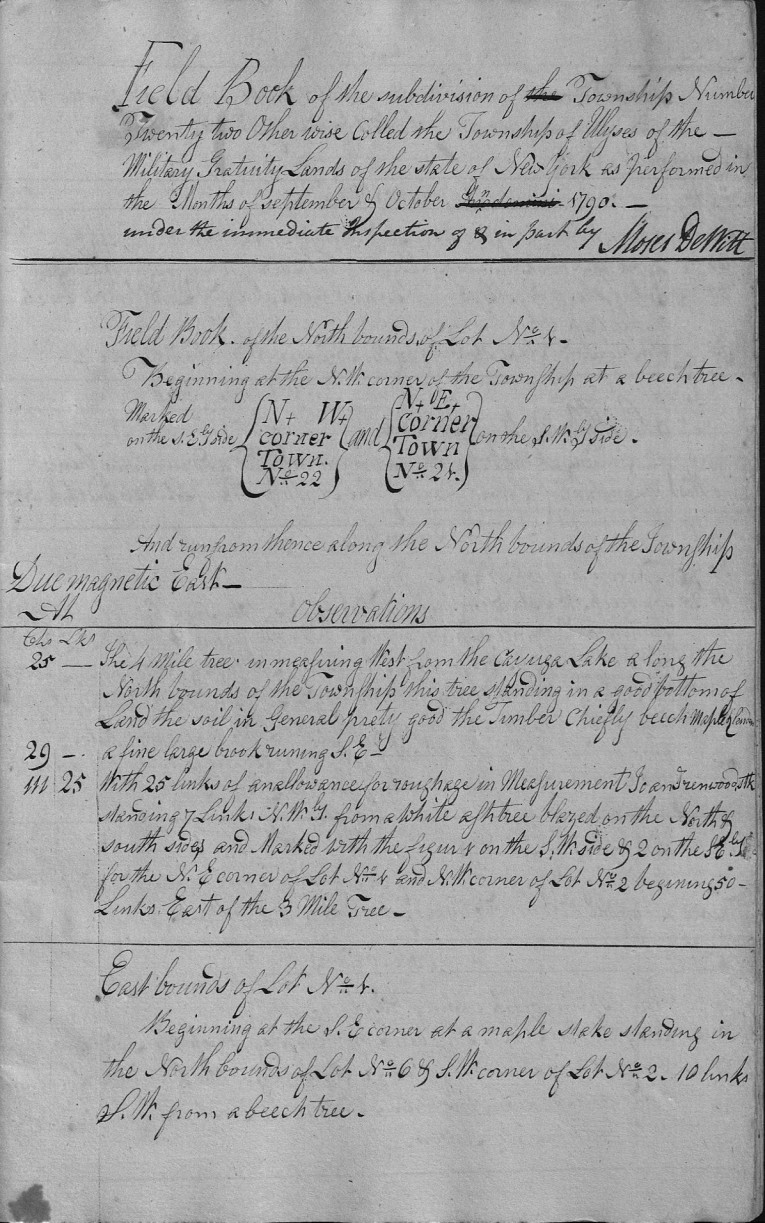 Field Book of the subdivision of the Township Number
Twenty two Other wise Colled the Township of Ulyses of the —
Military Gratuity Lands of the state of New York as performed in
the Months of september & October 1790. —
under the immediate Inspection of & in part by Moses DeWitt
Field Book of the North bounds of Lot No. 1.
Beginning at the N.W. corner of the Township at a beech tree -
Marked
on the S.E.ly Side {N+ W+ corner Town. No. 22} and {N+ E+ corner Town No. 21.} on the S.W.ly Side.
And run from thence along the North bounds of the Township
Due magnetic East —
At Observations
Chs Lks
25 — The 4 Mile tree in measuring West from the Cayuga Lake a long the
North bounds of the Township this tree standing in a good bottom of
Land the soil in General prety good the Timber Chiefly beech Maple
29 — a fine large brook runing S.E.
111 25 With 25 links of an allowance for roughage in Measurement To an Irenwood Stk
standing 7 Links N.W.ly from a white ash tree blazed on the North &
south sides and Marked with the figur 1 on the S.W. side & 2 on the S.E.ly
for the N.E corner of Lot No. 1 and N.W. corner of Lot No. 2 begining 50 -
Links East of the 3 Mile Tree -
East bounds of Lot No. 1.
Beginning at the S.E corner at a maple stake standing in
the North bounds of Lot No. 6 & S.W. corner of Lot No. 2. 10 links
S.W. from a beech tree -